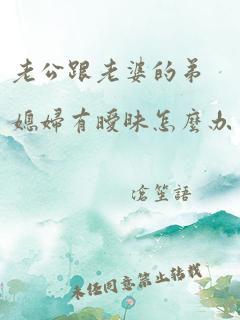 老公跟老婆的弟
媳婦有曖昧怎麼办
滄笙語
未经同意禁止转载